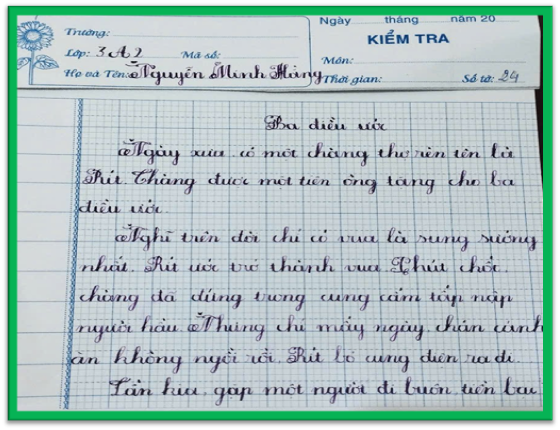 Ngày tháng năm 20
Trường:
KIỂM TRA
Lớp: 3A2 Mã số:
Môn:
Họ và Tên: Nguyễn Minh Hằng
Thời gian: Số tờ: 24
Ba điều ước
Ngày xưa, có một chàng thợ rèn tên là
Rít. Chàng được một tiên ông tặng cho ba
điều ước.
Nghĩ trên đời chỉ có vua là sung sướng
nhất, Rít ước trở thành vua. Phút chốc,
chàng đã đứng trong cung cấm tấp nập
người hầu. Nhưng chỉ mấy ngày, chán cảnh
ăn không ngồi rồi, Rít bỏ cung điện ra đi.
Lần kia, gặp một người đi buôn, tiền bạc